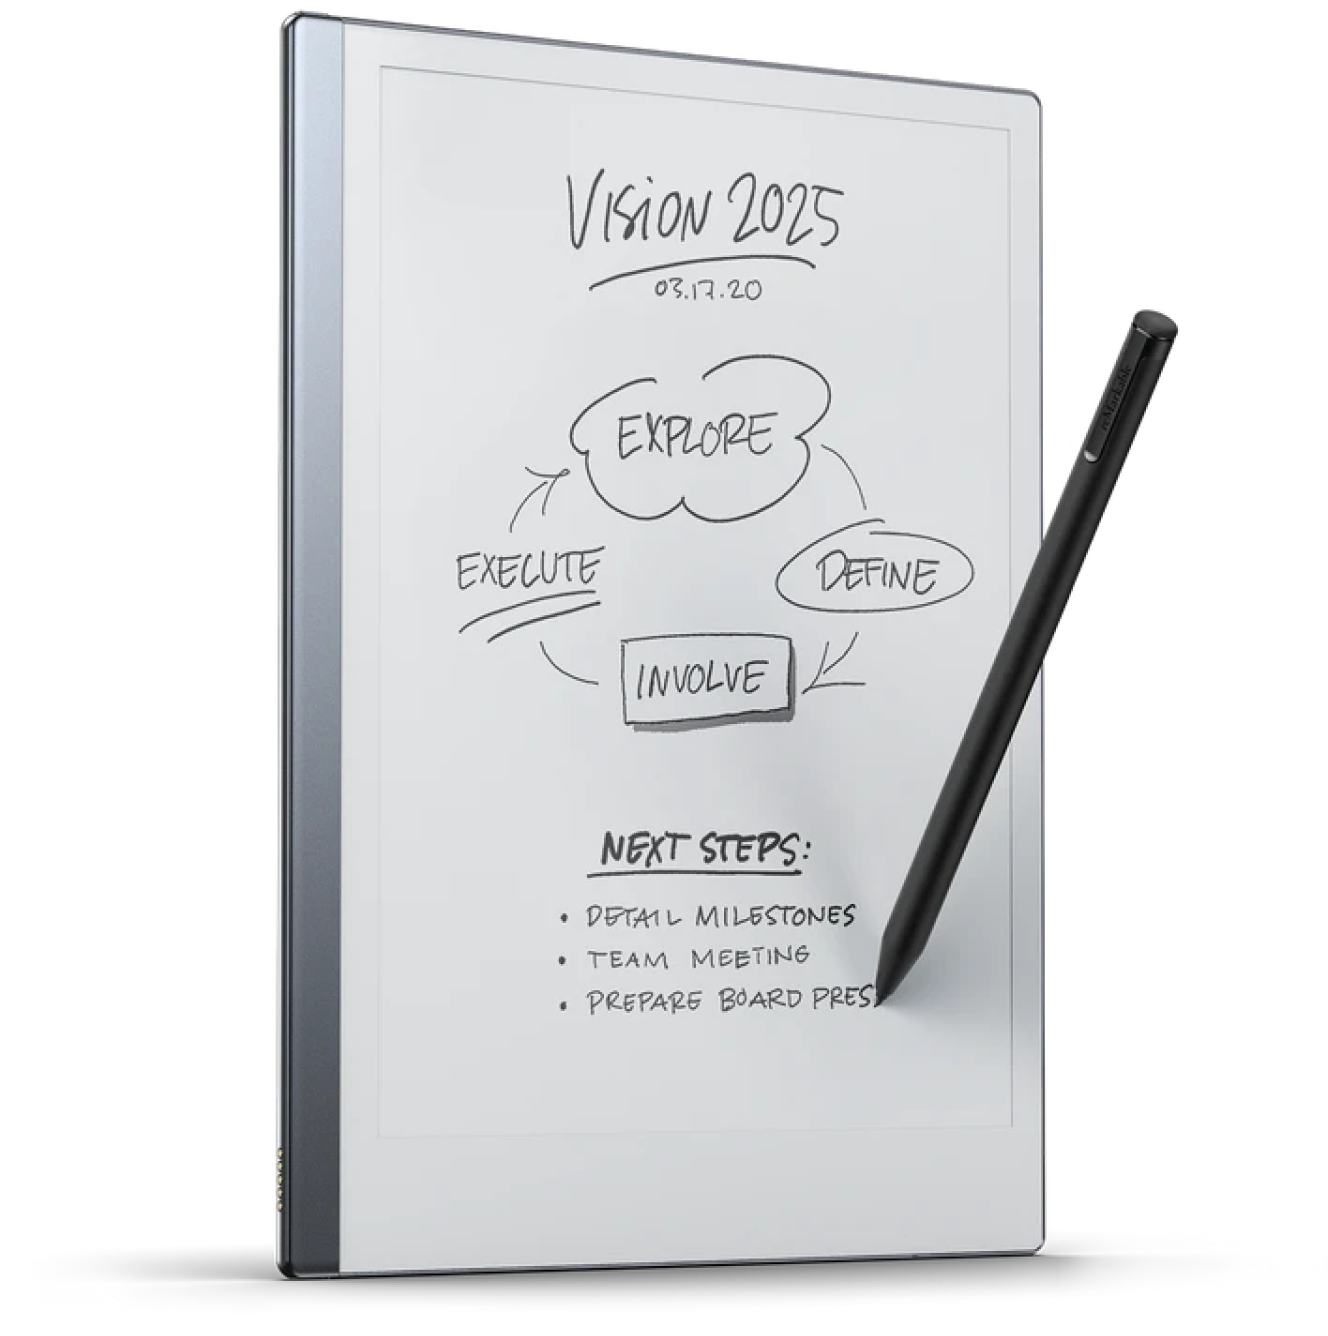 VISION 2025
03.17.20
EXPLORE
EXECUTE
DEFINE
INVOLVE
NEXT STEPS:
• DETAIL MILESTONES
• TEAM MEETING
• PREPARE BOARD PRES
reMarkable